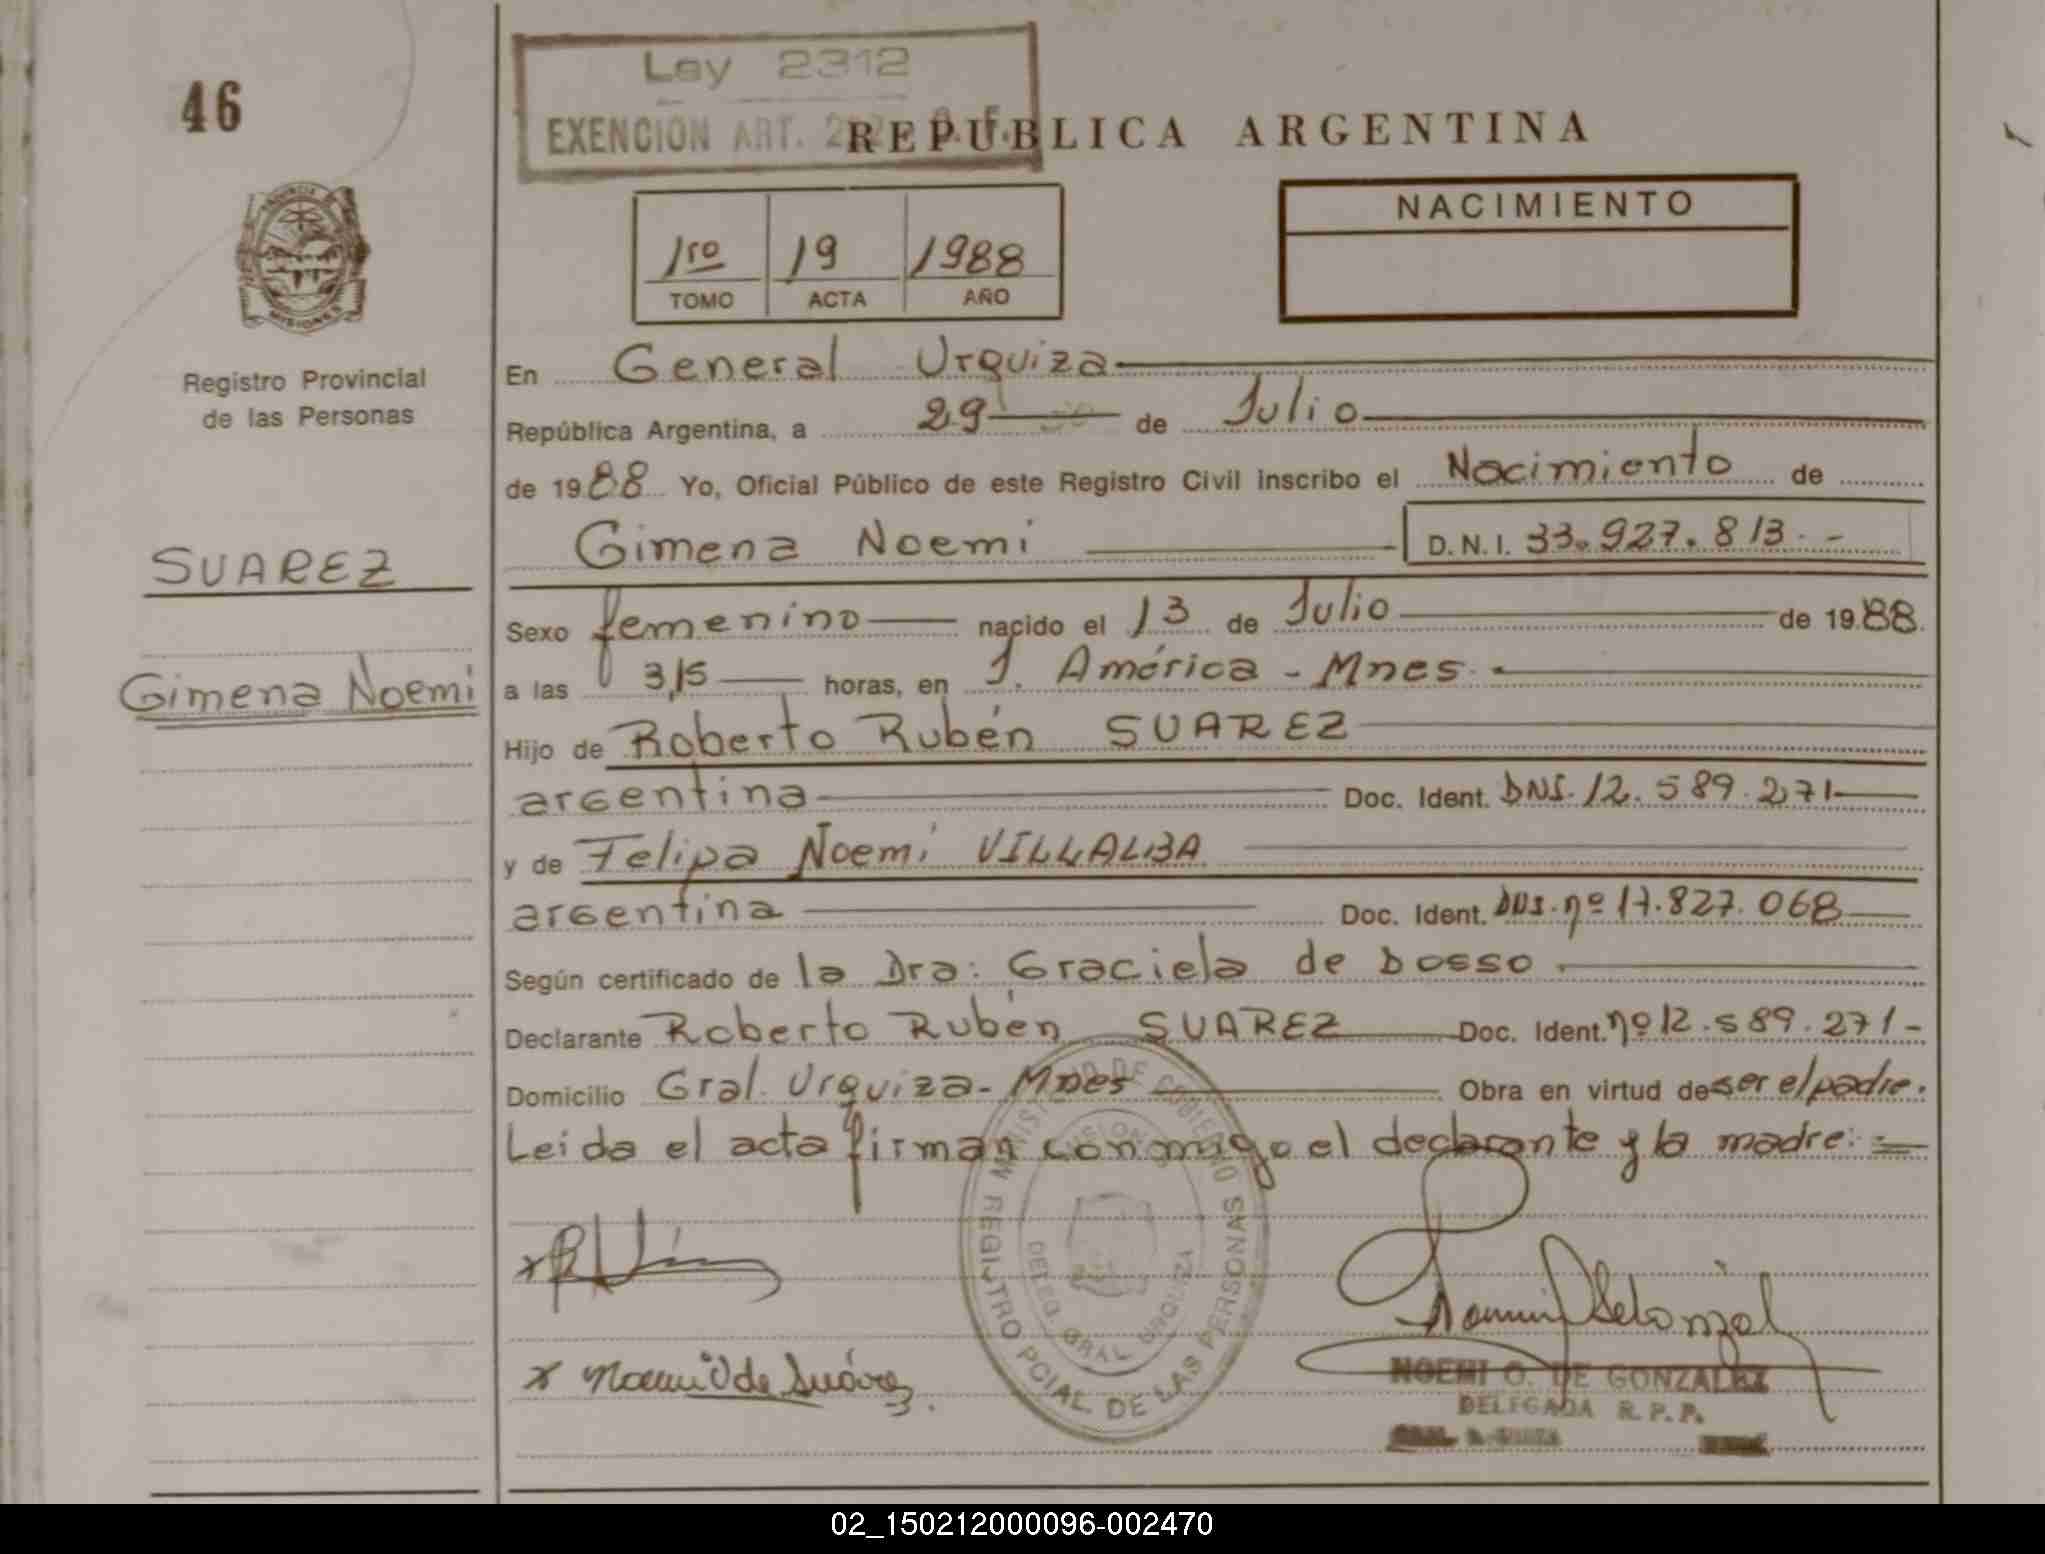 46
Ley 2312
EXENCION ART.
REPUBLICA ARGENTINA
NACIMIENTO
1ro 19 1988
TOMO ACTA AÑO
PROVINCIA DE
MISIONES
Registro Provincial
de las Personas
SUAREZ
Gimena Noemi
En General Urquiza
República Argentina, a 29 de Julio
de 1988 Yo, Oficial Público de este Registro Civil inscribo el Nacimiento de
Gimena Noemi D.N.I. 33.927.813.-
Sexo femenino nacido el 13 de Julio de 1988.
a las 3,15 horas, en J. América - Mnes.
Hijo de Roberto Rubén SUAREZ
argentina Doc. Ident. DNI. 12.589.271
y de Felipa Noemí VILLALBA
argentina Doc. Ident. DNI. nº 17.827.068
Según certificado de la Dra: Graciela de Dosso.
Declarante Roberto Rubén SUAREZ Doc. Ident. nº 12.589.271-
Domicilio Gral. Urquiza- Mnes Obra en virtud de ser el padre.
Leida el acta firman conmigo el declarante y la madre:
MINISTERIO DE GOBIERNO
MISIONES
REGISTRO PCIAL. DE LAS PERSONAS
DELEG. GRAL. URQUIZA
x Noemi V de Suárez.
NOEMI O. DE GONZALEZ
DELEGADA R.P.P.
02_150212000096-002470